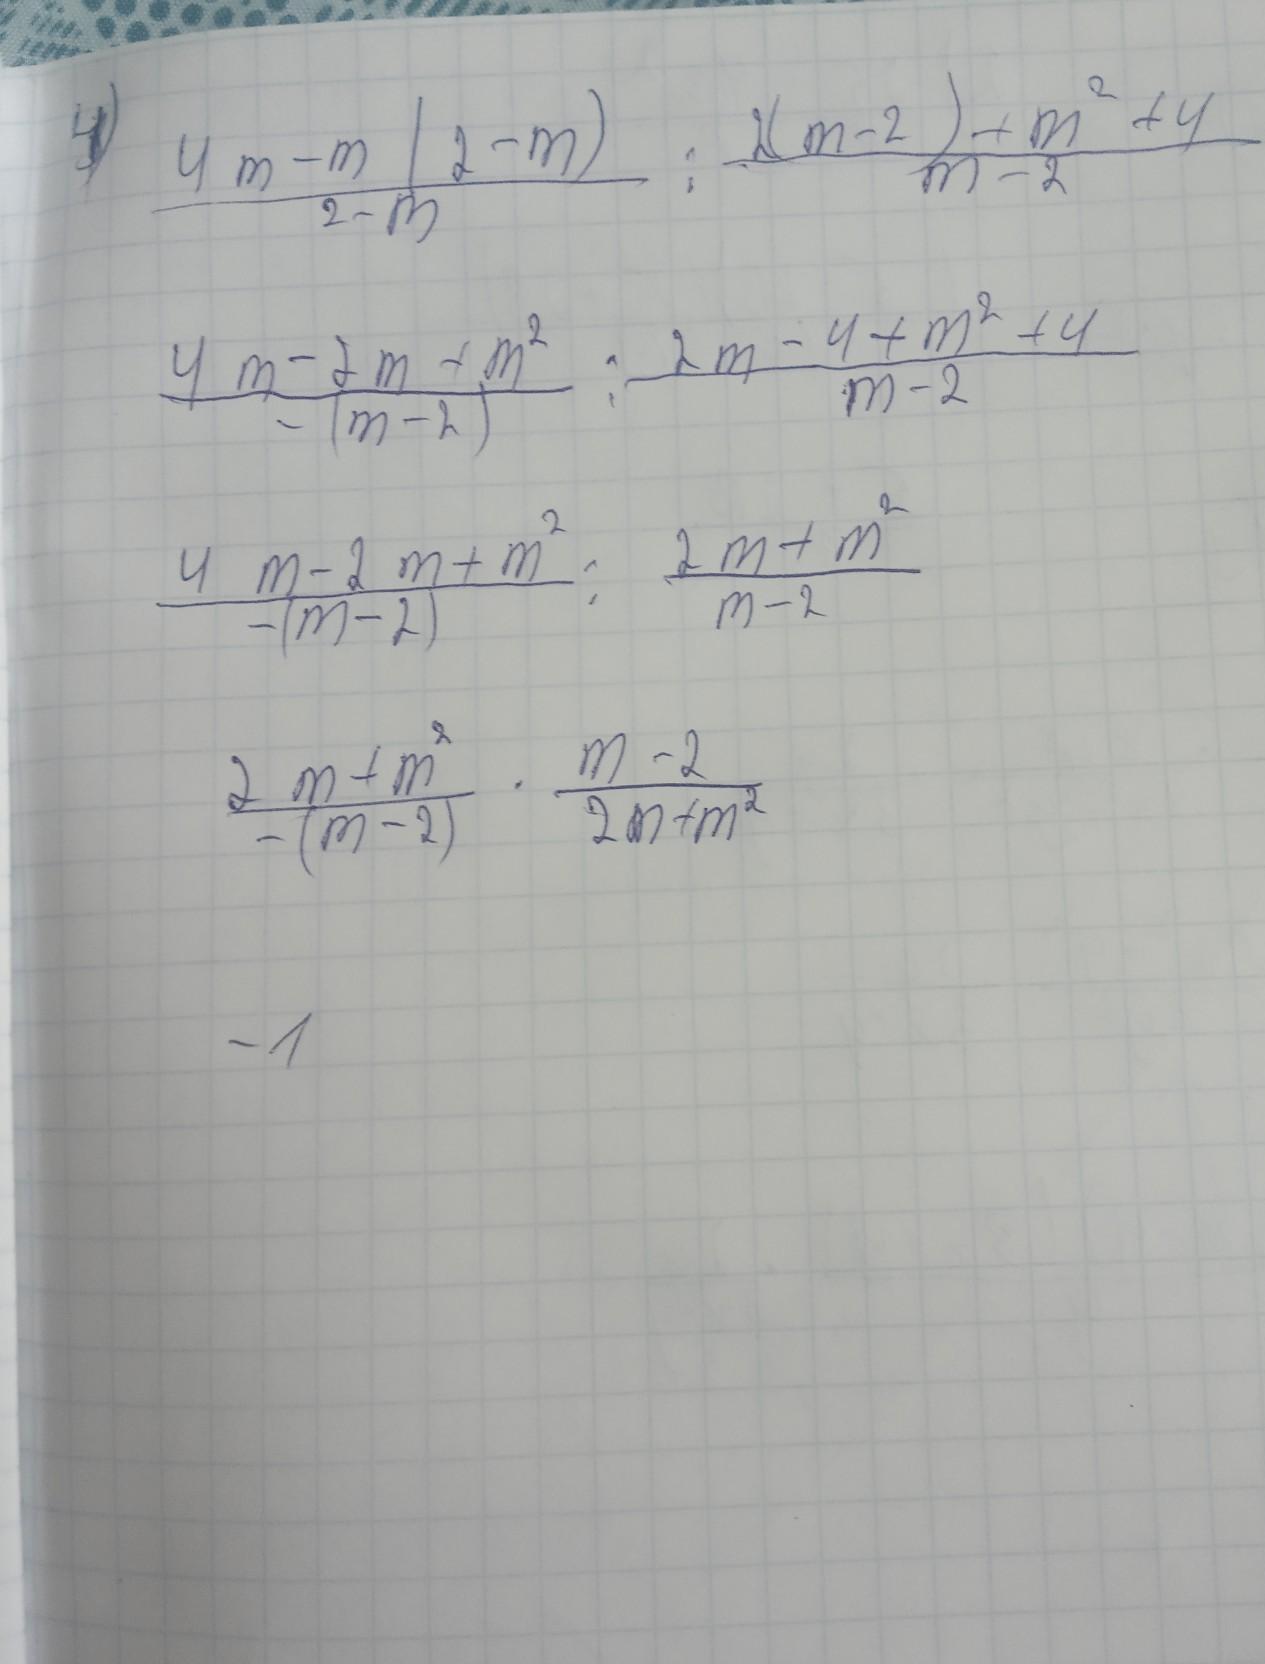 4) \frac{4m-m(2-m)}{2-m} : \frac{2(m-2)+m^2+4}{m-2}
\frac{4m-2m+m^2}{-(m-2)} : \frac{2m-4+m^2+4}{m-2}
\frac{4m-2m+m^2}{-(m-2)} : \frac{2m+m^2}{m-2}
\frac{2m+m^2}{-(m-2)} \cdot \frac{m-2}{2m+m^2}
-1